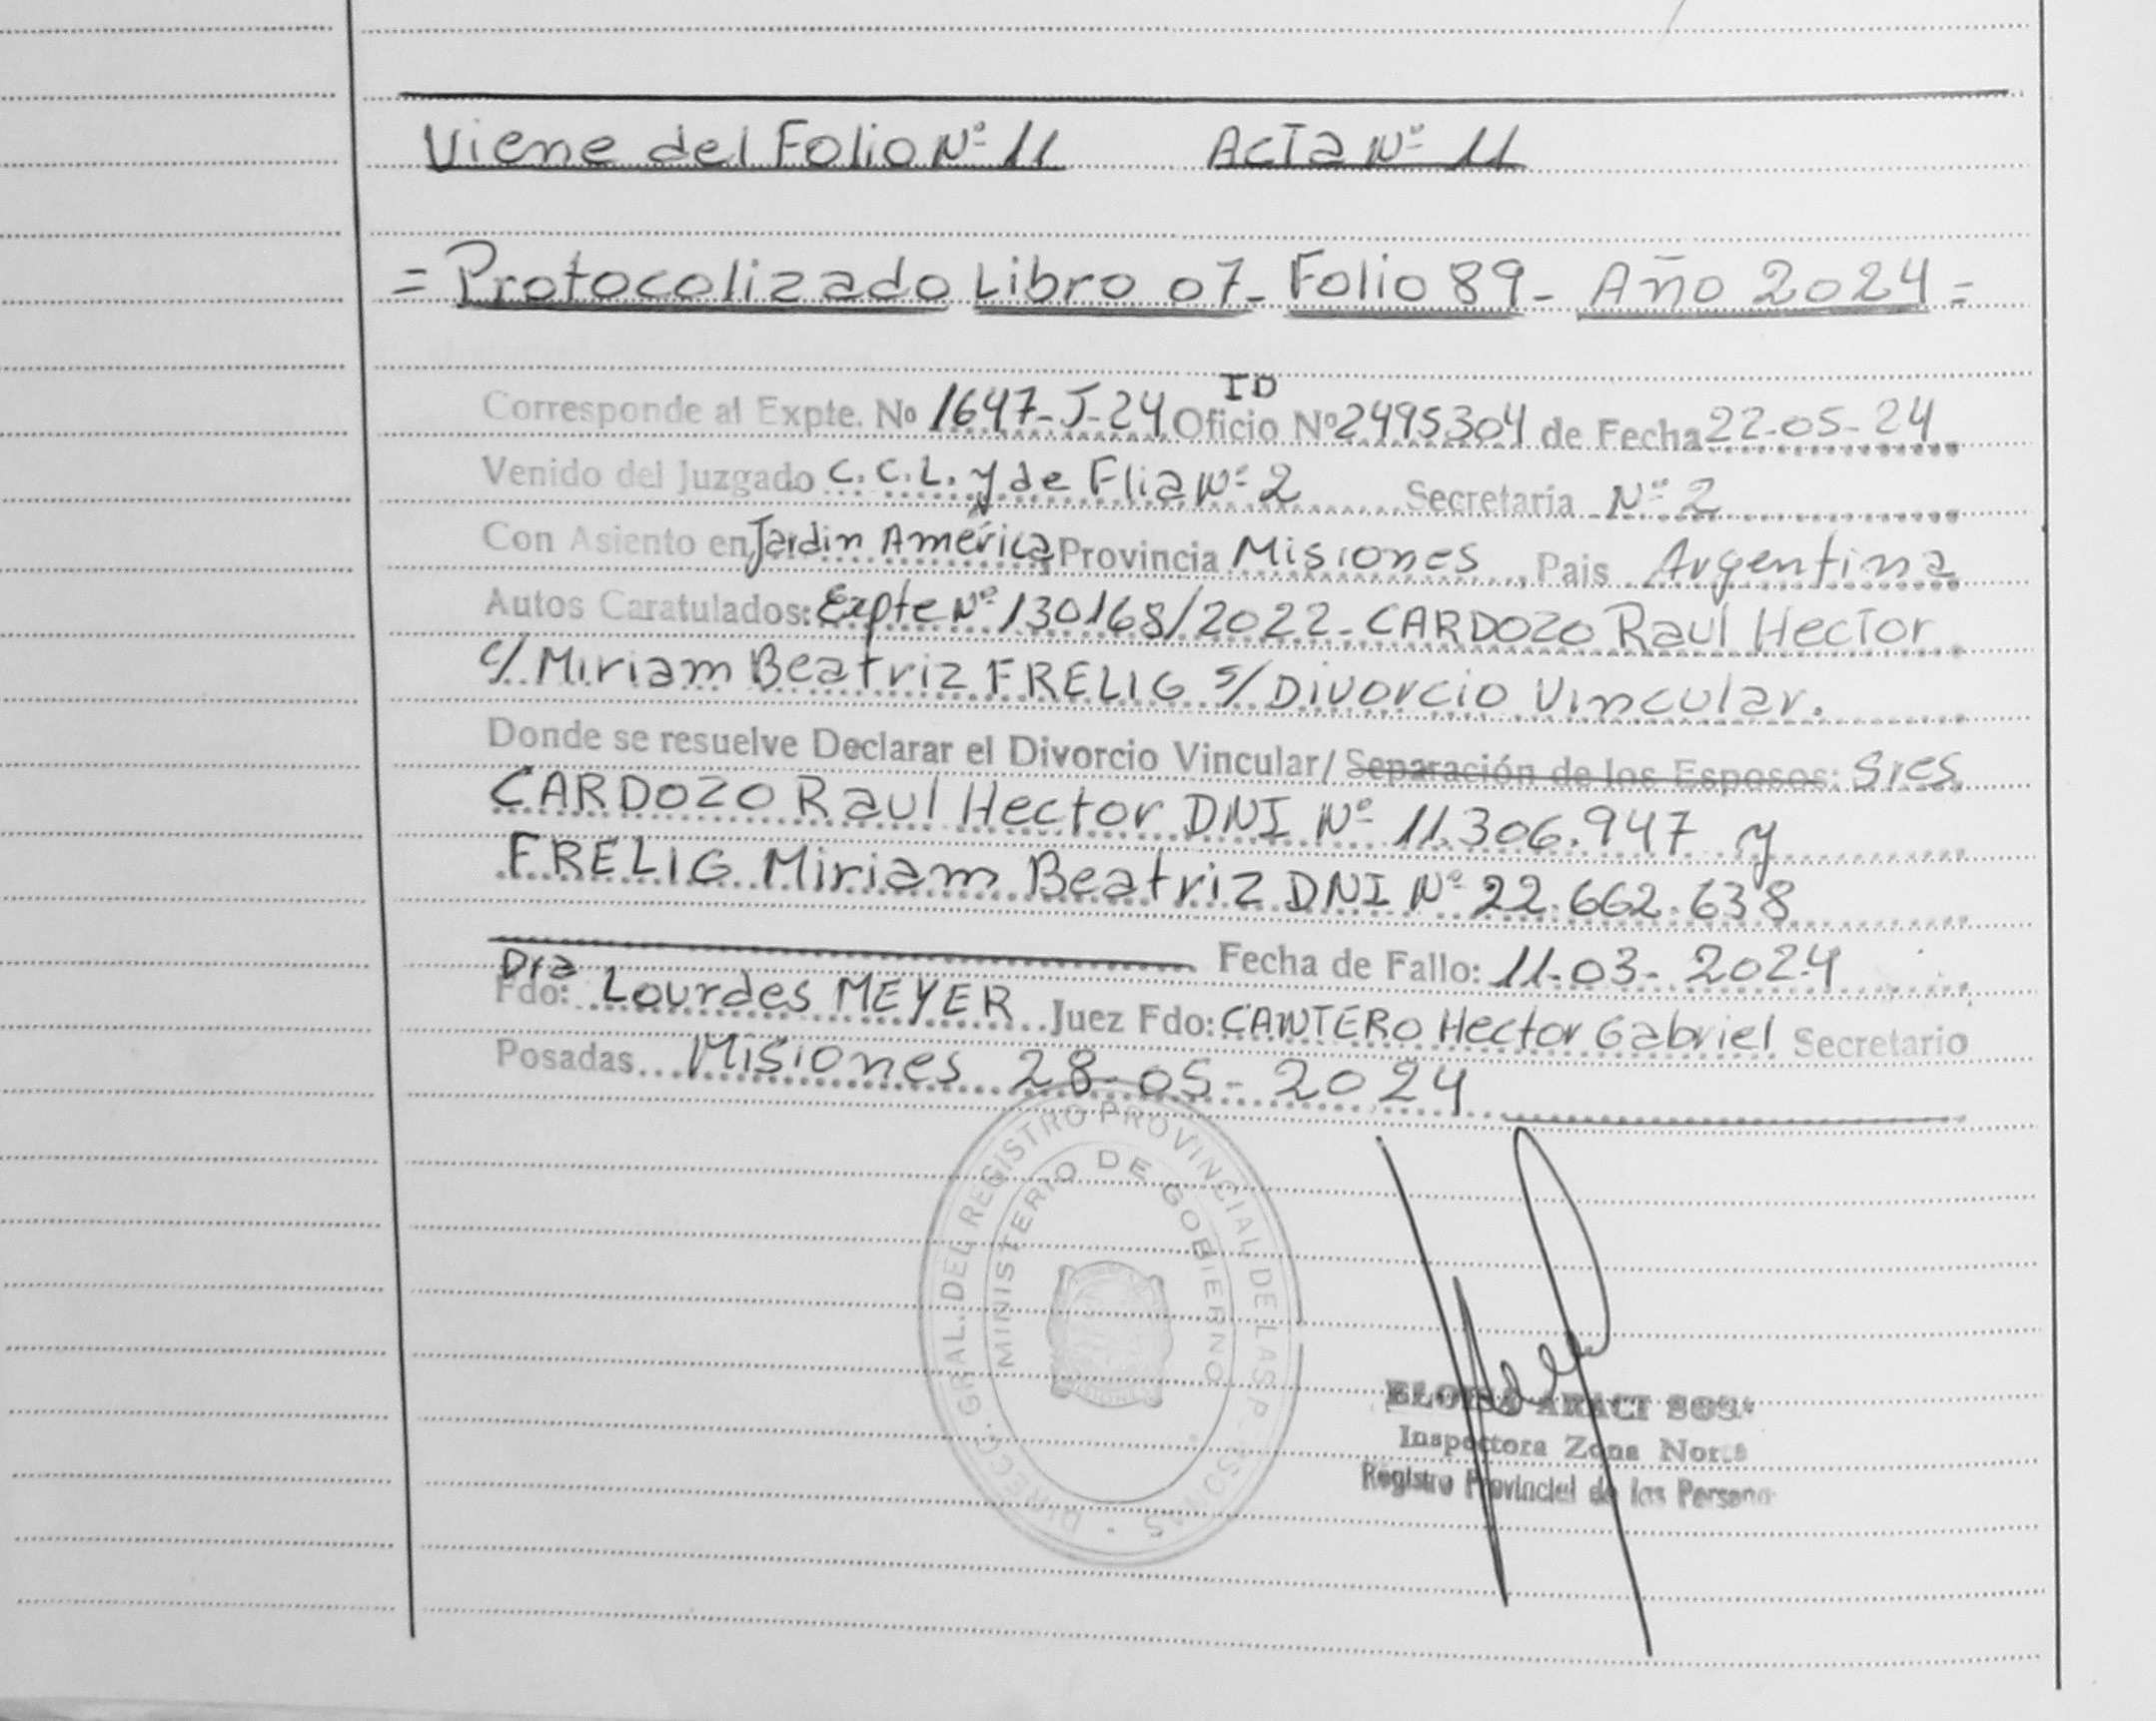 Viene del Folio Nº 11 Acta Nº 11
= Protocolizado Libro 07- Folio 89- Año 2024 =
ID
Corresponde al Expte. Nº 1647-J-24 Oficio Nº 2495304 de Fecha 22-05-24
Venido del Juzgado C.C.L. y de Flia Nº 2 Secretaria Nº 2
Con Asiento en Jardin América Provincia Misiones, Pais Argentina
Autos Caratulados: Expte Nº 130168/2022- CARDOZO Raul Hector
c/ Miriam Beatriz FRELIG s/ Divorcio Vincular.
Donde se resuelve Declarar el Divorcio Vincular/ Separación de los Esposos: Sres.
CARDOZO Raul Hector DNI Nº 11.306.947 y
FRELIG Miriam Beatriz DNI Nº 22.662.638
Fecha de Fallo: 11-03-2024
Dra
Fdo: Lourdes MEYER Juez Fdo: CANTERO Hector Gabriel Secretario
Posadas Misiones 28-05-2024
DIRECC. GRAL. DEL REGISTRO PROVINCIAL DE LAS
MINISTERIO DE GOBIERNO
Inspectora Zona
Registro Provincial de las